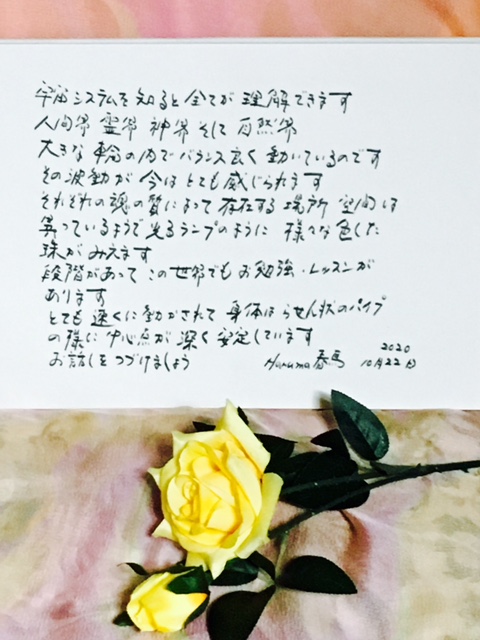 宇宙システムを知ると全てが理解できます
人間界 霊界 神界 そして 自然界
大きな 輪の内でバランス良く 動いているのです
その波動が 今は とても 感じられます
それぞれの 魂の質によって 存在する 場所 空間は
異っているようで 光るランプのように 様々な色した
珠がみえます
段階があって この世界でも お勉強・レッスンが
あります
とても 速くに動かされて 身体は らせん状のパイプ
の様に 中心点が 深く 安定しています
お話しをつづけましょう Haruma 春馬 2020
10月22日